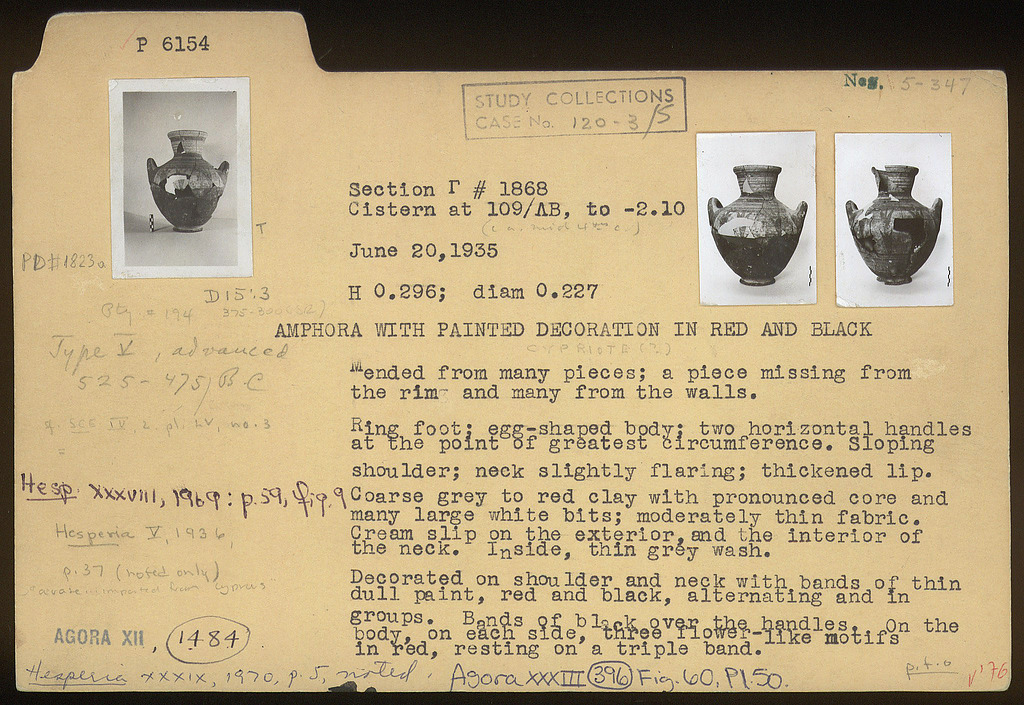 P 6154
Neg. 5-347
STUDY COLLECTIONS
CASE No. 120-3/5
Section Γ # 1868
Cistern at 109/ΛB, to -2.10
June 20,1935
H 0.296; diam 0.227
T
PD#1823a
D15:3
Pty # 194
AMPHORA WITH PAINTED DECORATION IN RED AND BLACK
CYPRIOTE (?)
Type V, advanced
525-475 B C
cf. SCE IV, 2, pl. LV, no. 3
Mended from many pieces; a piece missing from
the rim and many from the walls.
Ring foot; egg-shaped body; two horizontal handles
at the point of greatest circumference. Sloping
shoulder; neck slightly flaring; thickened lip.
Hesp. XXXVIII, 1969: p.59, fig.9
Coarse grey to red clay with pronounced core and
many large white bits; moderately thin fabric.
Cream slip on the exterior, and the interior of
the neck. Inside, thin grey wash.
Hesperia V, 1936,
p.37 (noted only)
"a vase imported from Cyprus"
Decorated on shoulder and neck with bands of thin
dull paint, red and black, alternating and in
groups. Bands of black over the handles. On the
body, on each side, three flower-like motifs
in red, resting on a triple band.
AGORA XII, 1484
Hesperia XXXIX, 1970, p.5, noted.
Agora XXXIII 396 Fig. 60, Pl. 50.
v'76